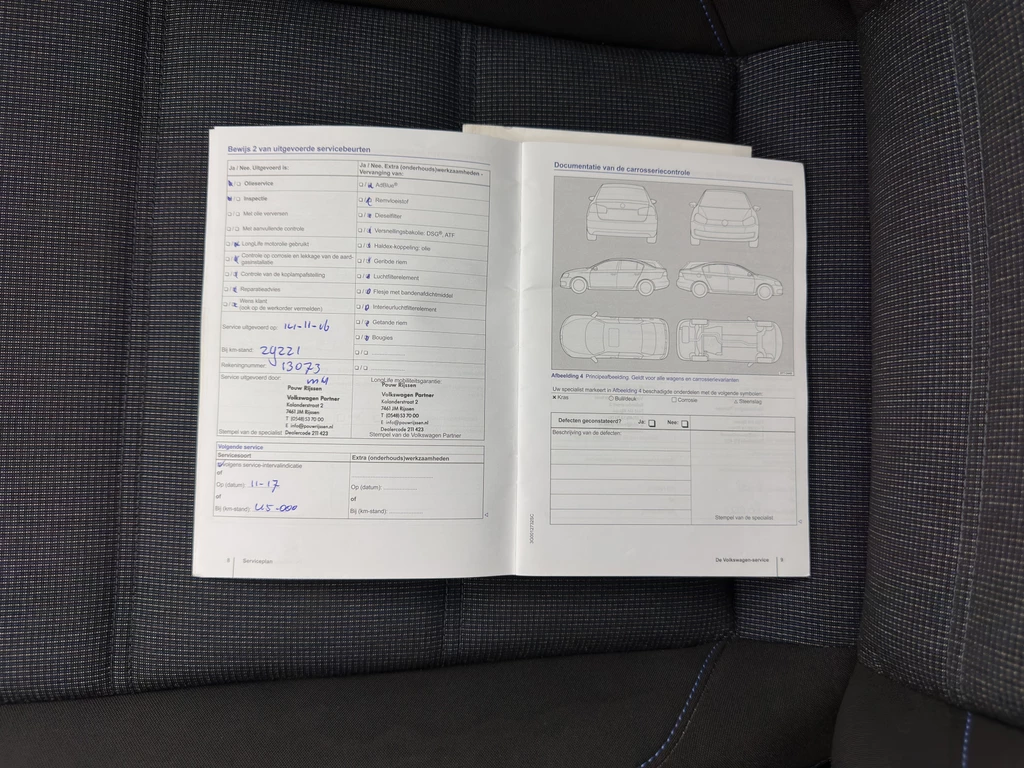 Bewijs 2 van uitgevoerde servicebeurten
Ja / Nee. Uitgevoerd is:
Olieservice
Inspectie
Met olie verversen
Met aanvullende controle
LongLife motorolie gebruikt
Controle op corrosie en lekkage van de aard-
gasinstallatie
Controle van de koplampafstelling
Reparatieadvies
Wens klant
(ook op de werkorder vermelden)
Service uitgevoerd op: 14-11-16
Bij km-stand: 29221
Rekeningnummer: 13073
Service uitgevoerd door:
Pouw Rijssen
Volkswagen Partner
Kalanderstraat 2
7461 JM Rijssen
T (0548) 53 70 00
E info@pouwrijssen.nl
Stempel van de specialist Dealercode 211 423
Ja / Nee. Extra (onderhouds)werkzaamheden -
Vervanging van:
AdBlue®
Remvloeistof
Dieselfilter
Versnellingsbakolie: DSG®, ATF
Haldex-koppeling: olie
Geribde riem
Luchtfilterelement
Flesje met bandenafdichtmiddel
Interieurluchtfilterelement
Getande riem
Bougies
LongLife mobiliteitsgarantie:
Pouw Rijssen
Volkswagen Partner
Kalanderstraat 2
7461 JM Rijssen
T (0548) 53 70 00
E info@pouwrijssen.nl
Dealercode 211 423
Stempel van de Volkswagen Partner
Volgende service
Servicesoort
Volgens service-intervalindicatie
of
Op (datum): 11-17
of
Bij (km-stand): 45-000
Extra (onderhouds)werkzaamheden
Op (datum):
of
Bij (km-stand):
8 Serviceplan
Documentatie van de carrosseriecontrole
Afbeelding 4 Principeafbeelding. Geldt voor alle wagens en carrosserievarianten.
Uw specialist markeert in Afbeelding 4 beschadigde onderdelen met de volgende symbolen:
x Kras ○ Buil/deuk □ Corrosie △ Steenslag
Defecten geconstateerd? Ja: Nee:
Beschrijving van de defecten:
Stempel van de specialist
De Volkswagen-service 9